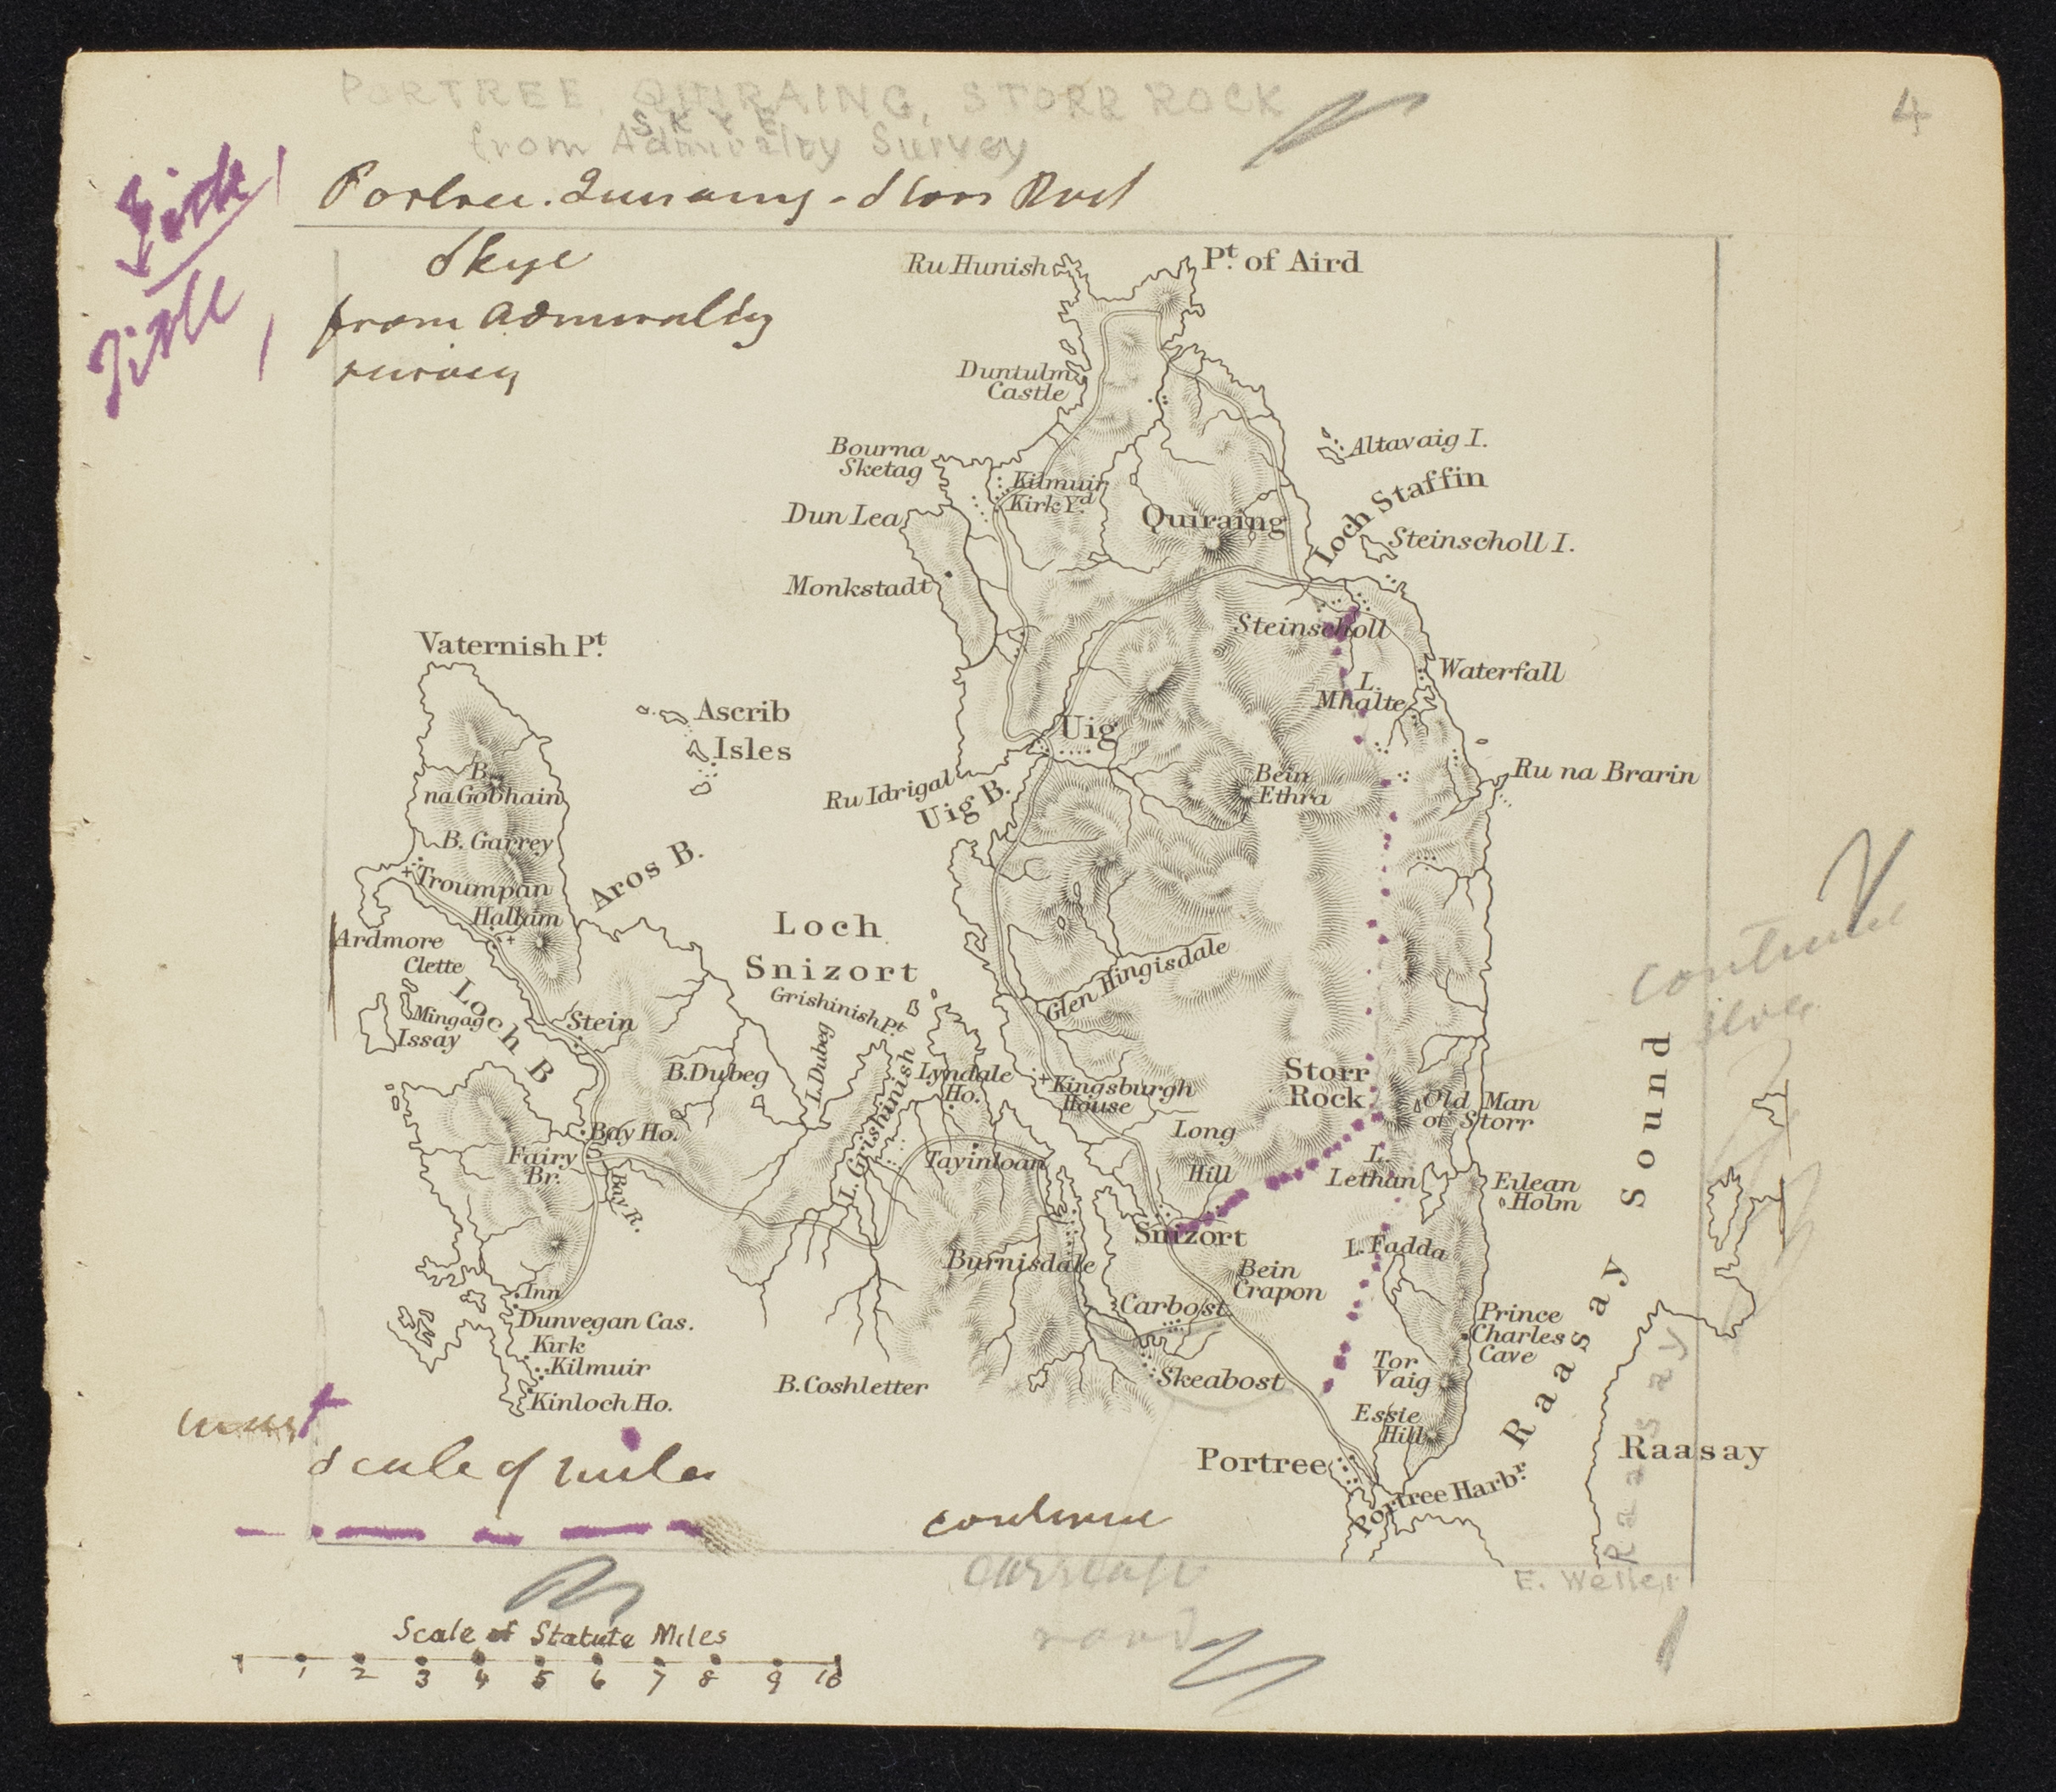 PORTREE, QUIRAING, STORR ROCK
SKYE
from Admiralty Survey
4
Portree. Quiraing - Storr Rock
Title
Skye
from Admiralty
survey
Ru Hunish
Pt. of Aird
Duntulm
Castle
Bourna
Sketag
Altavaig I.
Kilmuir
Kirk Yd.
Dun Lea
Quiraing
Loch Staffin
Steinscholl I.
Monkstadt
Steinscholl
Vaternish Pt.
Waterfall
L.
Mhalte
Ascrib
Isles
Uig
B.
na Gobhain
Ru Idrigal
Uig B.
Bein
Ethra
Ru na Brarin
B. Garrey
Troumpan
Aros B.
Hallam
Ardmore
Clette
Loch
Snizort
Glen Hingisdale
Loch B
Mingag
Issay
Stein
Grishinish Pt.
L. Dubeg
B. Dubeg
L. Grishinish
Lyndale
Ho.
Kingsburgh
House
Storr
Rock
Old Man
of Storr
Bay Ho.
Fairy
Br.
Bay R.
Tayinloan
Long
Hill
L.
Lethan
Eilean
Holm
Snizort
L. Fadda
Burnisdale
Bein
Crapon
Inn
Dunvegan Cas.
Kirk
Kilmuir
Kinloch Ho.
Carbost
Skeabost
Prince
Charles
Cave
Tor
Vaig
B. Coshletter
Essie
Hill
Portree
Portree Harbr.
Raasay Sound
Raasay
Raasay
scale of miles
continue
carriage
road
E. Weller
Scale of Statute Miles
1 2 3 4 5 6 7 8 9 10